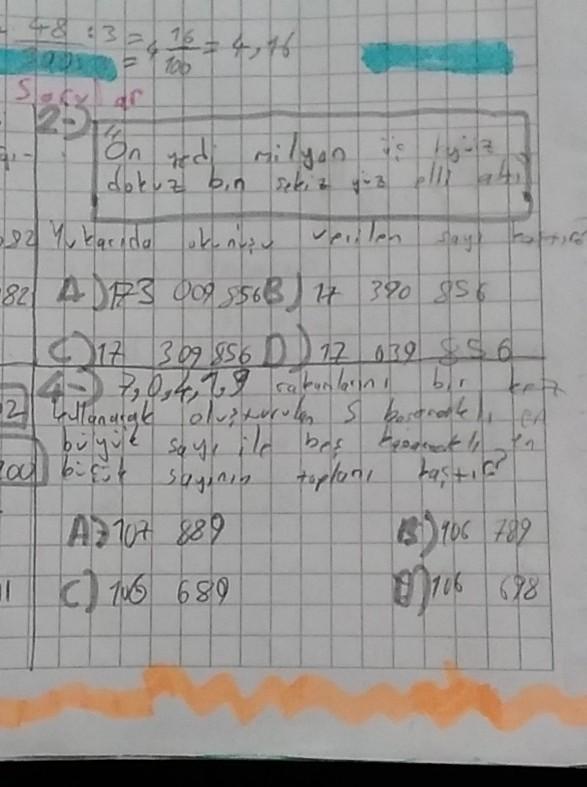 48 : 3 = 4 16/100 = 4,16
Sorular
2-)
"On yedi milyon üç yüz
dokuz bin sekiz yüz elli altı
92
Yukarıda okunuşu verilen sayı kaçtır?
82
A) 173 009 856 B) 17 390 856
C) 17 309 856 D) 17 039 856
4-) 7,0,4,1,9 rakamlarını bir kez
kullanarak oluşturulan 5 basamaklı en
büyük sayı ile beş basamaklı en
küçük sayının toplamı kaçtır?
A) 107 889 B) 106 789
C) 106 689 D) 106 698